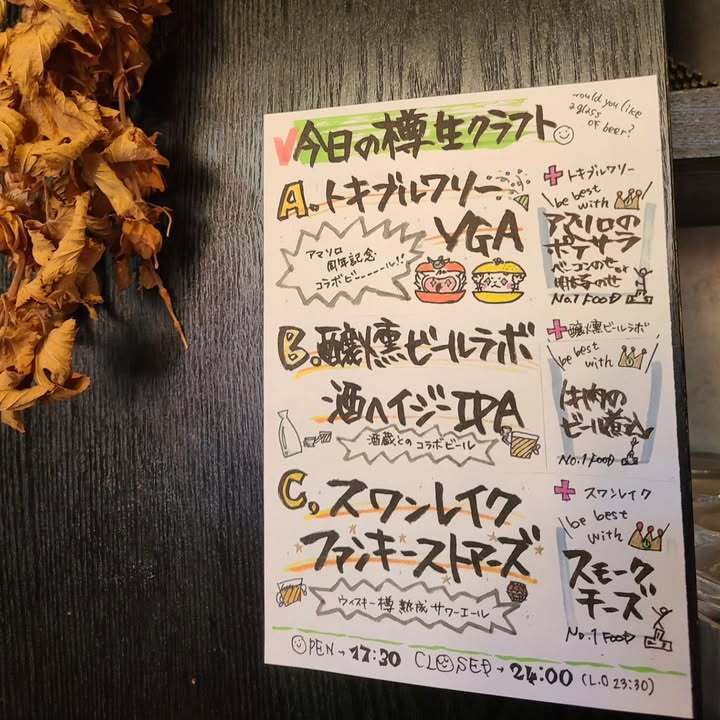 今日の樽生クラフト
would you like
a glass
of beer?
A. トキブルワリー
VGA
アマソロ
周年記念
コラボビーーーール!!
+ トキブルワリー
be best
with
アマソロの
ポテサラ
ベーコンのせor
明太子のせ
No.1 FOOD
B. 醸燻ビールラボ
酒ヘイジーIPA
酒蔵とのコラボビール
+ 醸燻ビールラボ
be best
with
牛肉の
ビール煮込
No.1 FOOD
C. スワンレイク
ファンキーストアーズ
ウィスキー樽熟成サワーエール
+ スワンレイク
be best
with
スモーク
チーズ
No.1 FOOD
OPEN→17:30 CLOSED→24:00 (L.O 23:30)